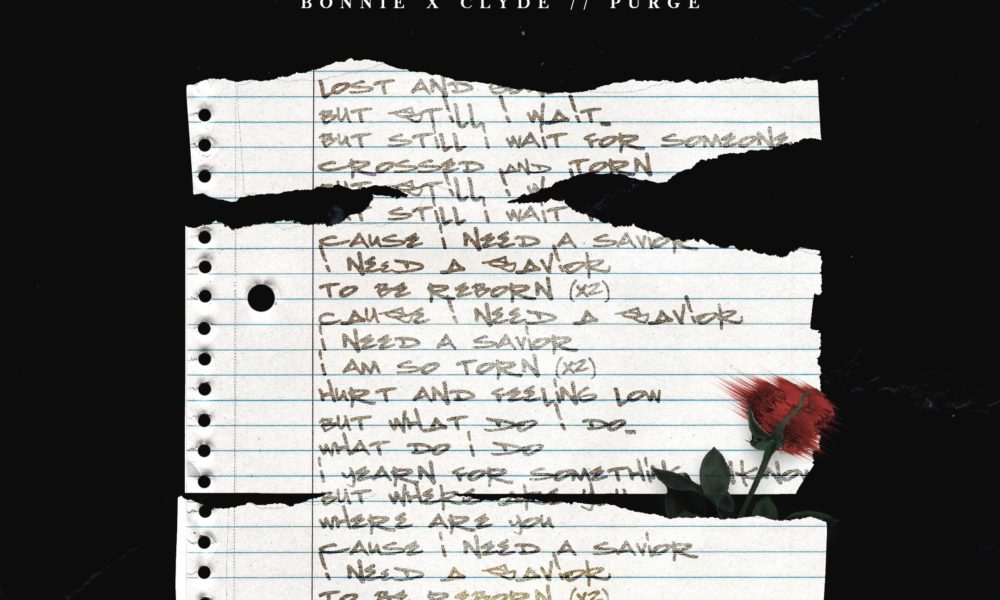 BONNIE X CLYDE // PURGE
LOST AND
BUT STILL I WAIT
BUT STILL I WAIT FOR SOMEONE
CROSSED AND TORN
BUT STILL I
STILL I WAIT
CAUSE I NEED A SAVIOR
I NEED A SAVIOR
TO BE REBORN (X2)
CAUSE I NEED A SAVIOR
I NEED A SAVIOR
I AM SO TORN (X2)
HURT AND FEELING LOW
BUT WHAT DO I DO
WHAT DO I DO
I YEARN FOR SOMETHING
BUT WHERE ARE
WHERE ARE YOU
CAUSE I NEED A SAVIOR
I NEED A SAVIOR
TO BE REBORN (X2)